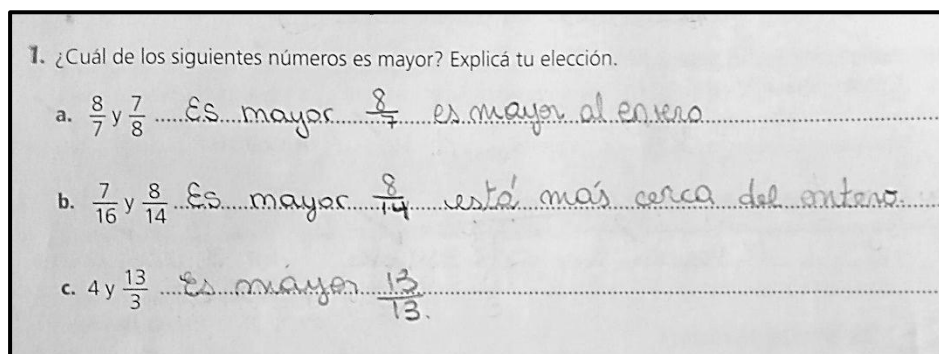 1. ¿Cuál de los siguientes números es mayor? Explicá tu elección.
a. 8/7 y 7/8 ..... Es mayor 8/7 es mayor al entero
b. 7/16 y 8/14 Es mayor 8/14 está más cerca del entero.
c. 4 y 13/3 ... Es máyor 13/13.